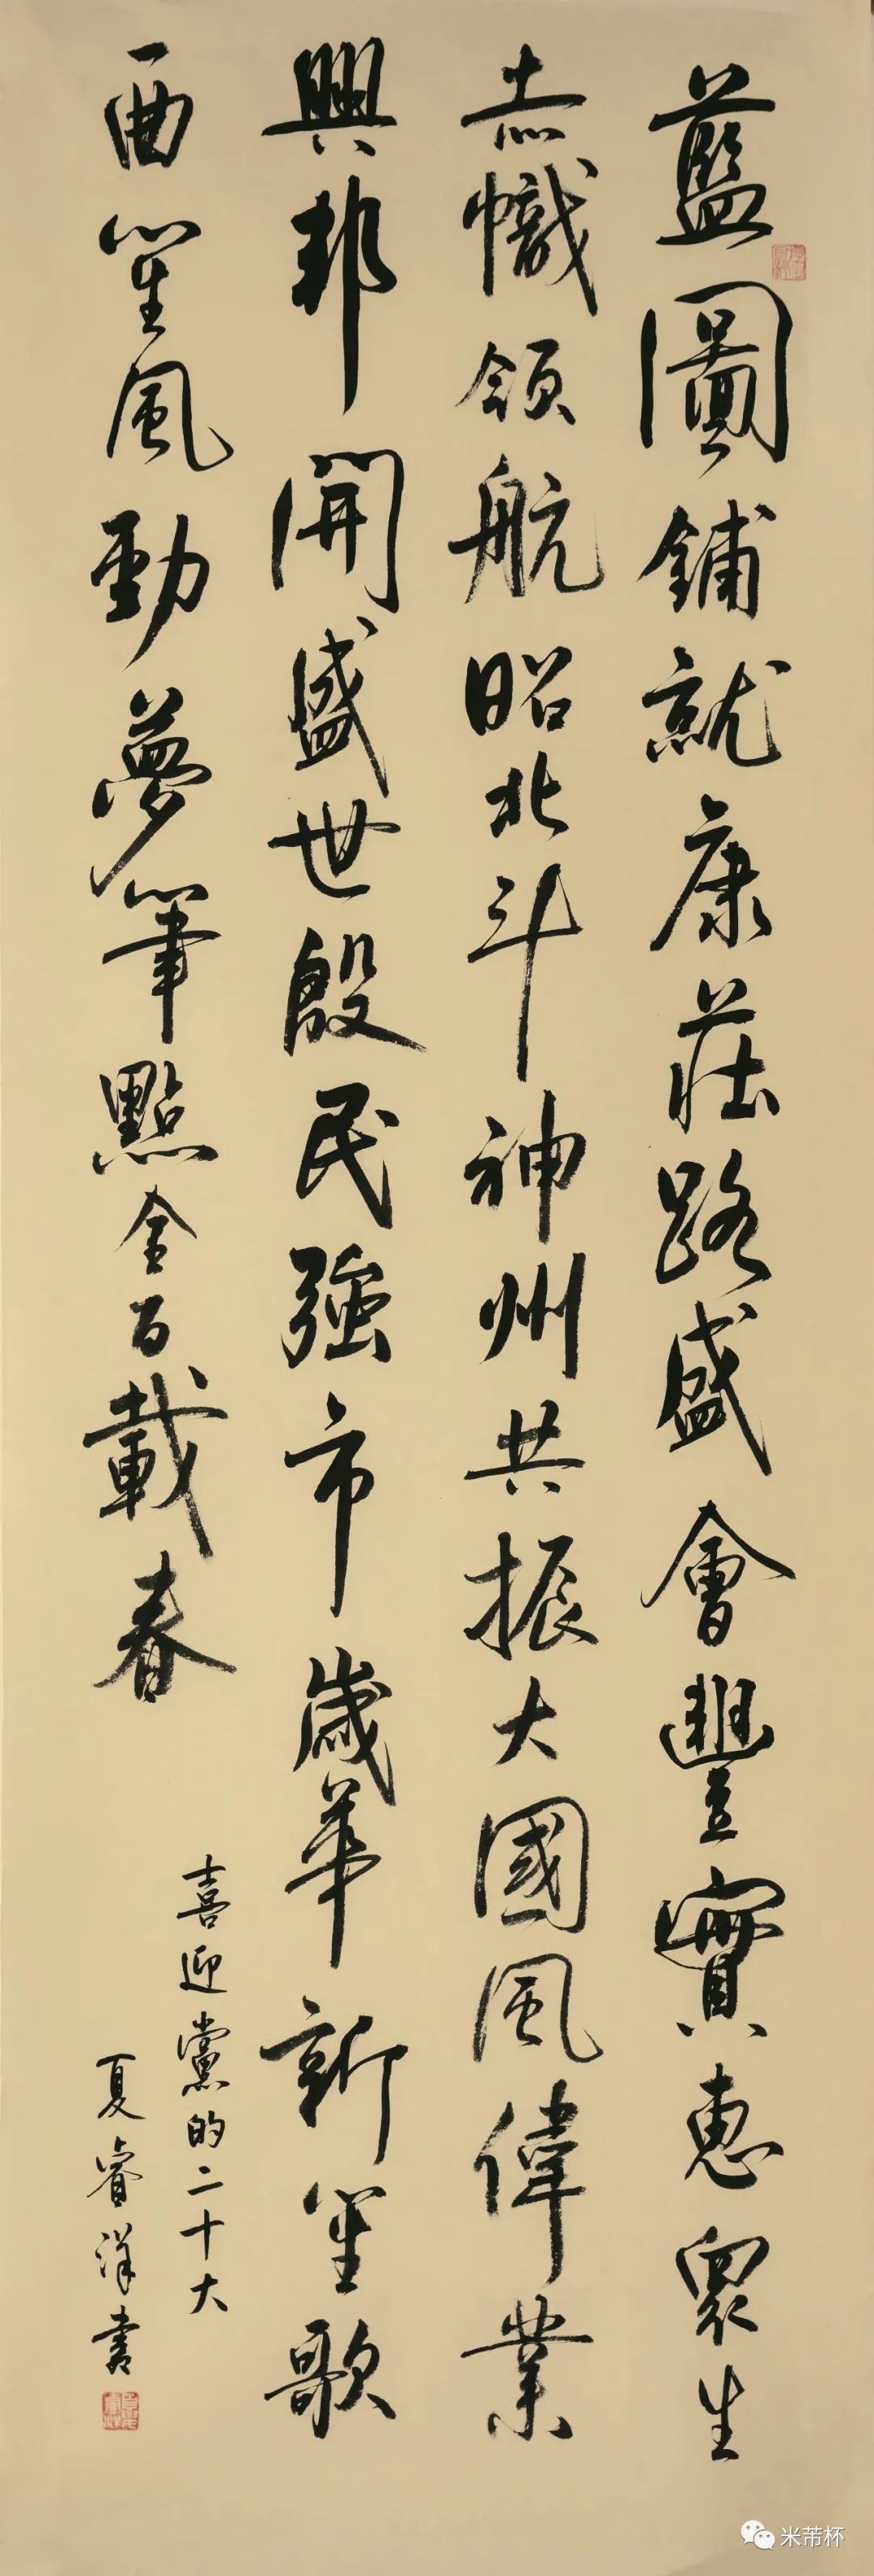 藍圖鋪就康莊路盛會豐實惠眾生
赤幟領航昭北斗神州共振大國風偉業
興邦開盛世殷民強市歲華新笙歌
一曲笙風勁夢筆點金百載春
喜迎黨的二十大
夏睿洋書
米芾杯